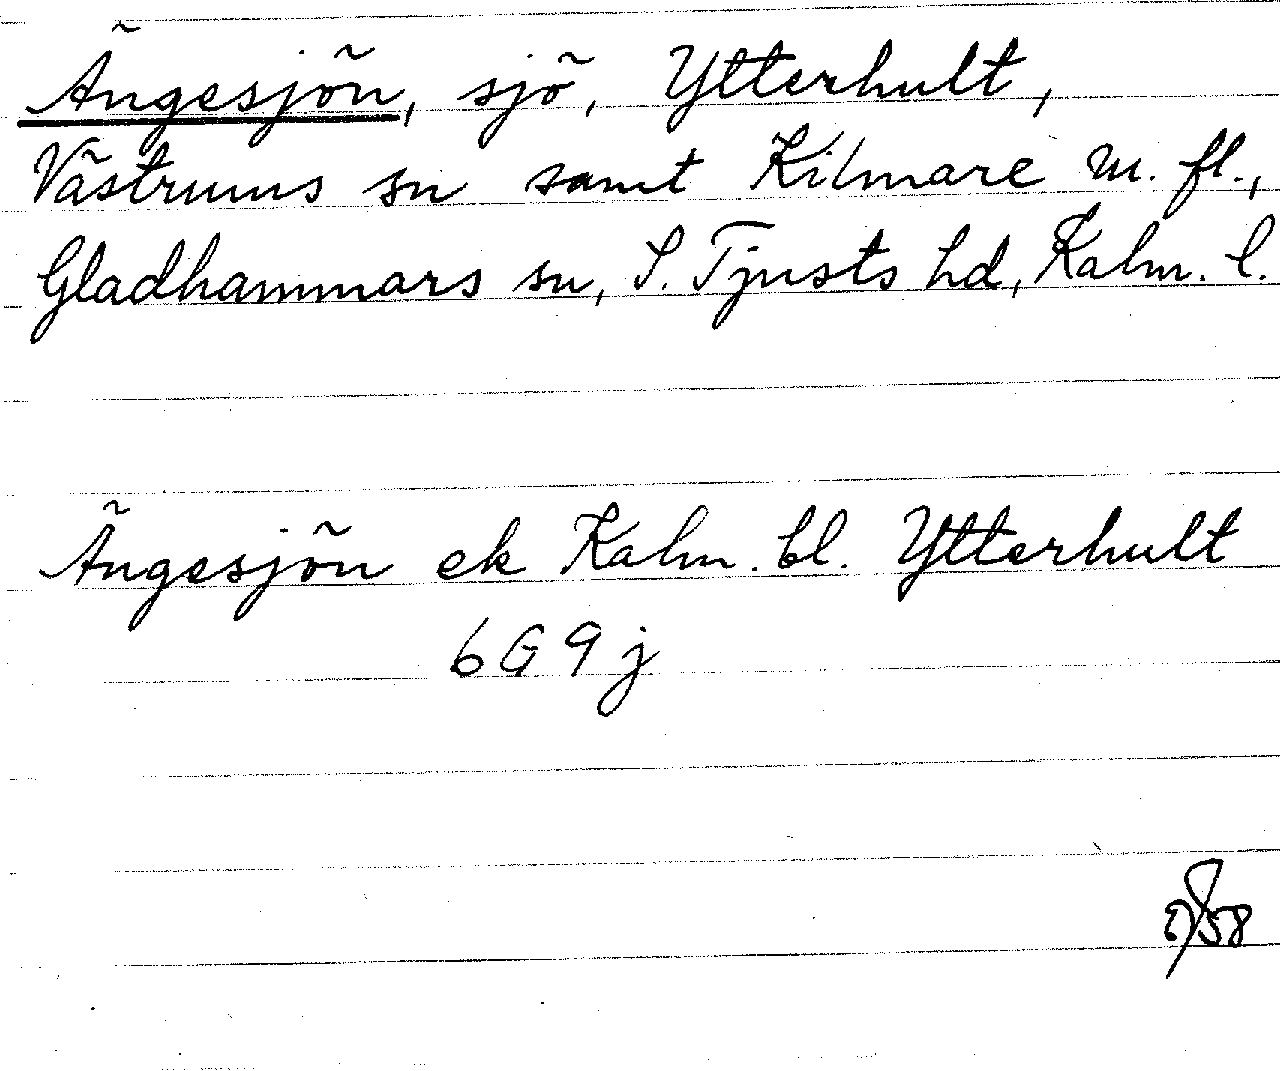 Ängesjön, sjö, Ytterhult,
Västrums sn samt Kilmare m. fl.,
Gladhammars sn, S. Tjusts hd, Kalm. l.
Ängesjön ek Kalm. bl. Ytterhult
6G9j
58